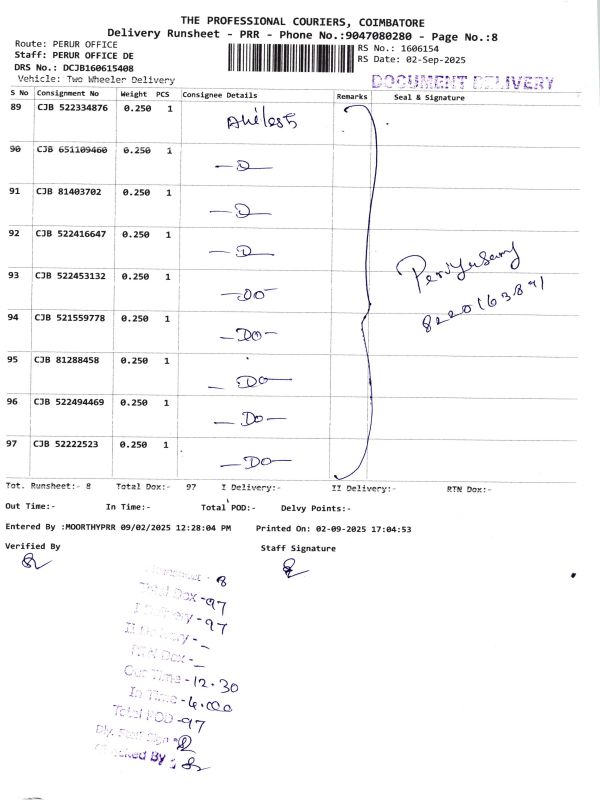 THE PROFESSIONAL COURIERS, COIMBATORE
Delivery Runsheet - PRR - Phone No.:9047080280 - Page No.:8
Route: PERUR OFFICE
RS No.: 1606154
Staff: PERUR OFFICE DE
RS Date: 02-Sep-2025
DRS No.: DCJB160615408
Vehicle: Two Wheeler Delivery
DOCUMENT DELIVERY
S No Consignment No Weight PCS Consignee Details Remarks Seal & Signature
89 CJB 522334876 0.250 1
90 CJB 651109460 0.250 1 -D-
91 CJB 81403702 0.250 1 -D-
92 CJB 522416647 0.250 1 -D-
93 CJB 522453132 0.250 1 -DO-
94 CJB 521559778 0.250 1 -DO-
95 CJB 81288458 0.250 1 -DO-
96 CJB 522494469 0.250 1 -DO-
97 CJB 52222523 0.250 1 -DO-
Periyasamy
8220163891
Tot. Runsheet:- 8 Total Dox:- 97 I Delivery:- II Delivery:- RTN Dox:-
Out Time:- In Time:- Total POD:- Delvy Points:-
Entered By :MOORTHYPRR 09/02/2025 12:28:04 PM Printed On: 02-09-2025 17:04:53
Verified By Staff Signature
- 8
Total Dox -97
I Delivery -97
II Delivery - -
RTN Dox - -
Out Time -12.30
In Time -6.00
Total POD -97
Dly. Staff Sign
Checked By